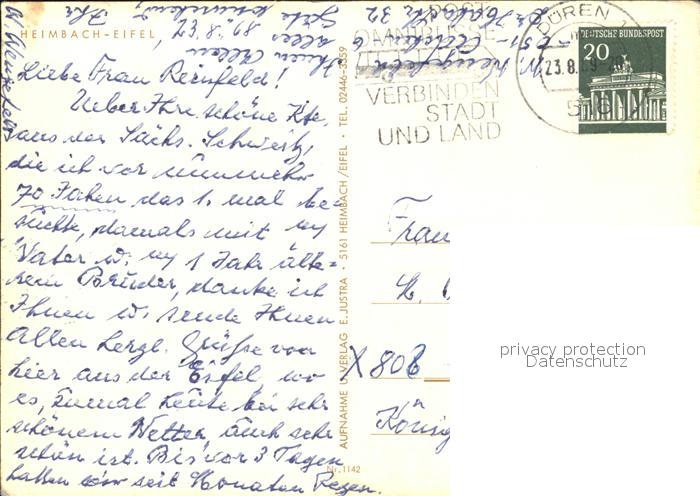 HEIMBACH-EIFEL
Liebe Frau Reinfeld!
Ueber Ihre schöne Kte.
aus der Sächs. Schweiz,
die ich vor nunmehr
70 Jahren das 1. mal be=
suchte, damals mit my
Vater u. my 1 Jahr älte=
rem Bruder, danke ich
Ihnen u. sende Ihnen
Allen herzl. Grüße von
hier aus der Eifel, wo
es, zumal heute bei sehr
schönem Wetter, auch sehr
schön ist. Bis vor 3 Tagen
hatten wir seit Monaten Regen.
AUFNAHME U. VERLAG E. JUSTRA · 5161 HEIMBACH/EIFEL · TEL. 02446-3359
Nr. 1142
OMNIBUSSE
VERBINDEN
STADT
UND LAND
DÜREN 1
23.8.69
516
DEUTSCHE BUNDESPOST
20
Frau
X 808
König
privacy protection
Datenschutz